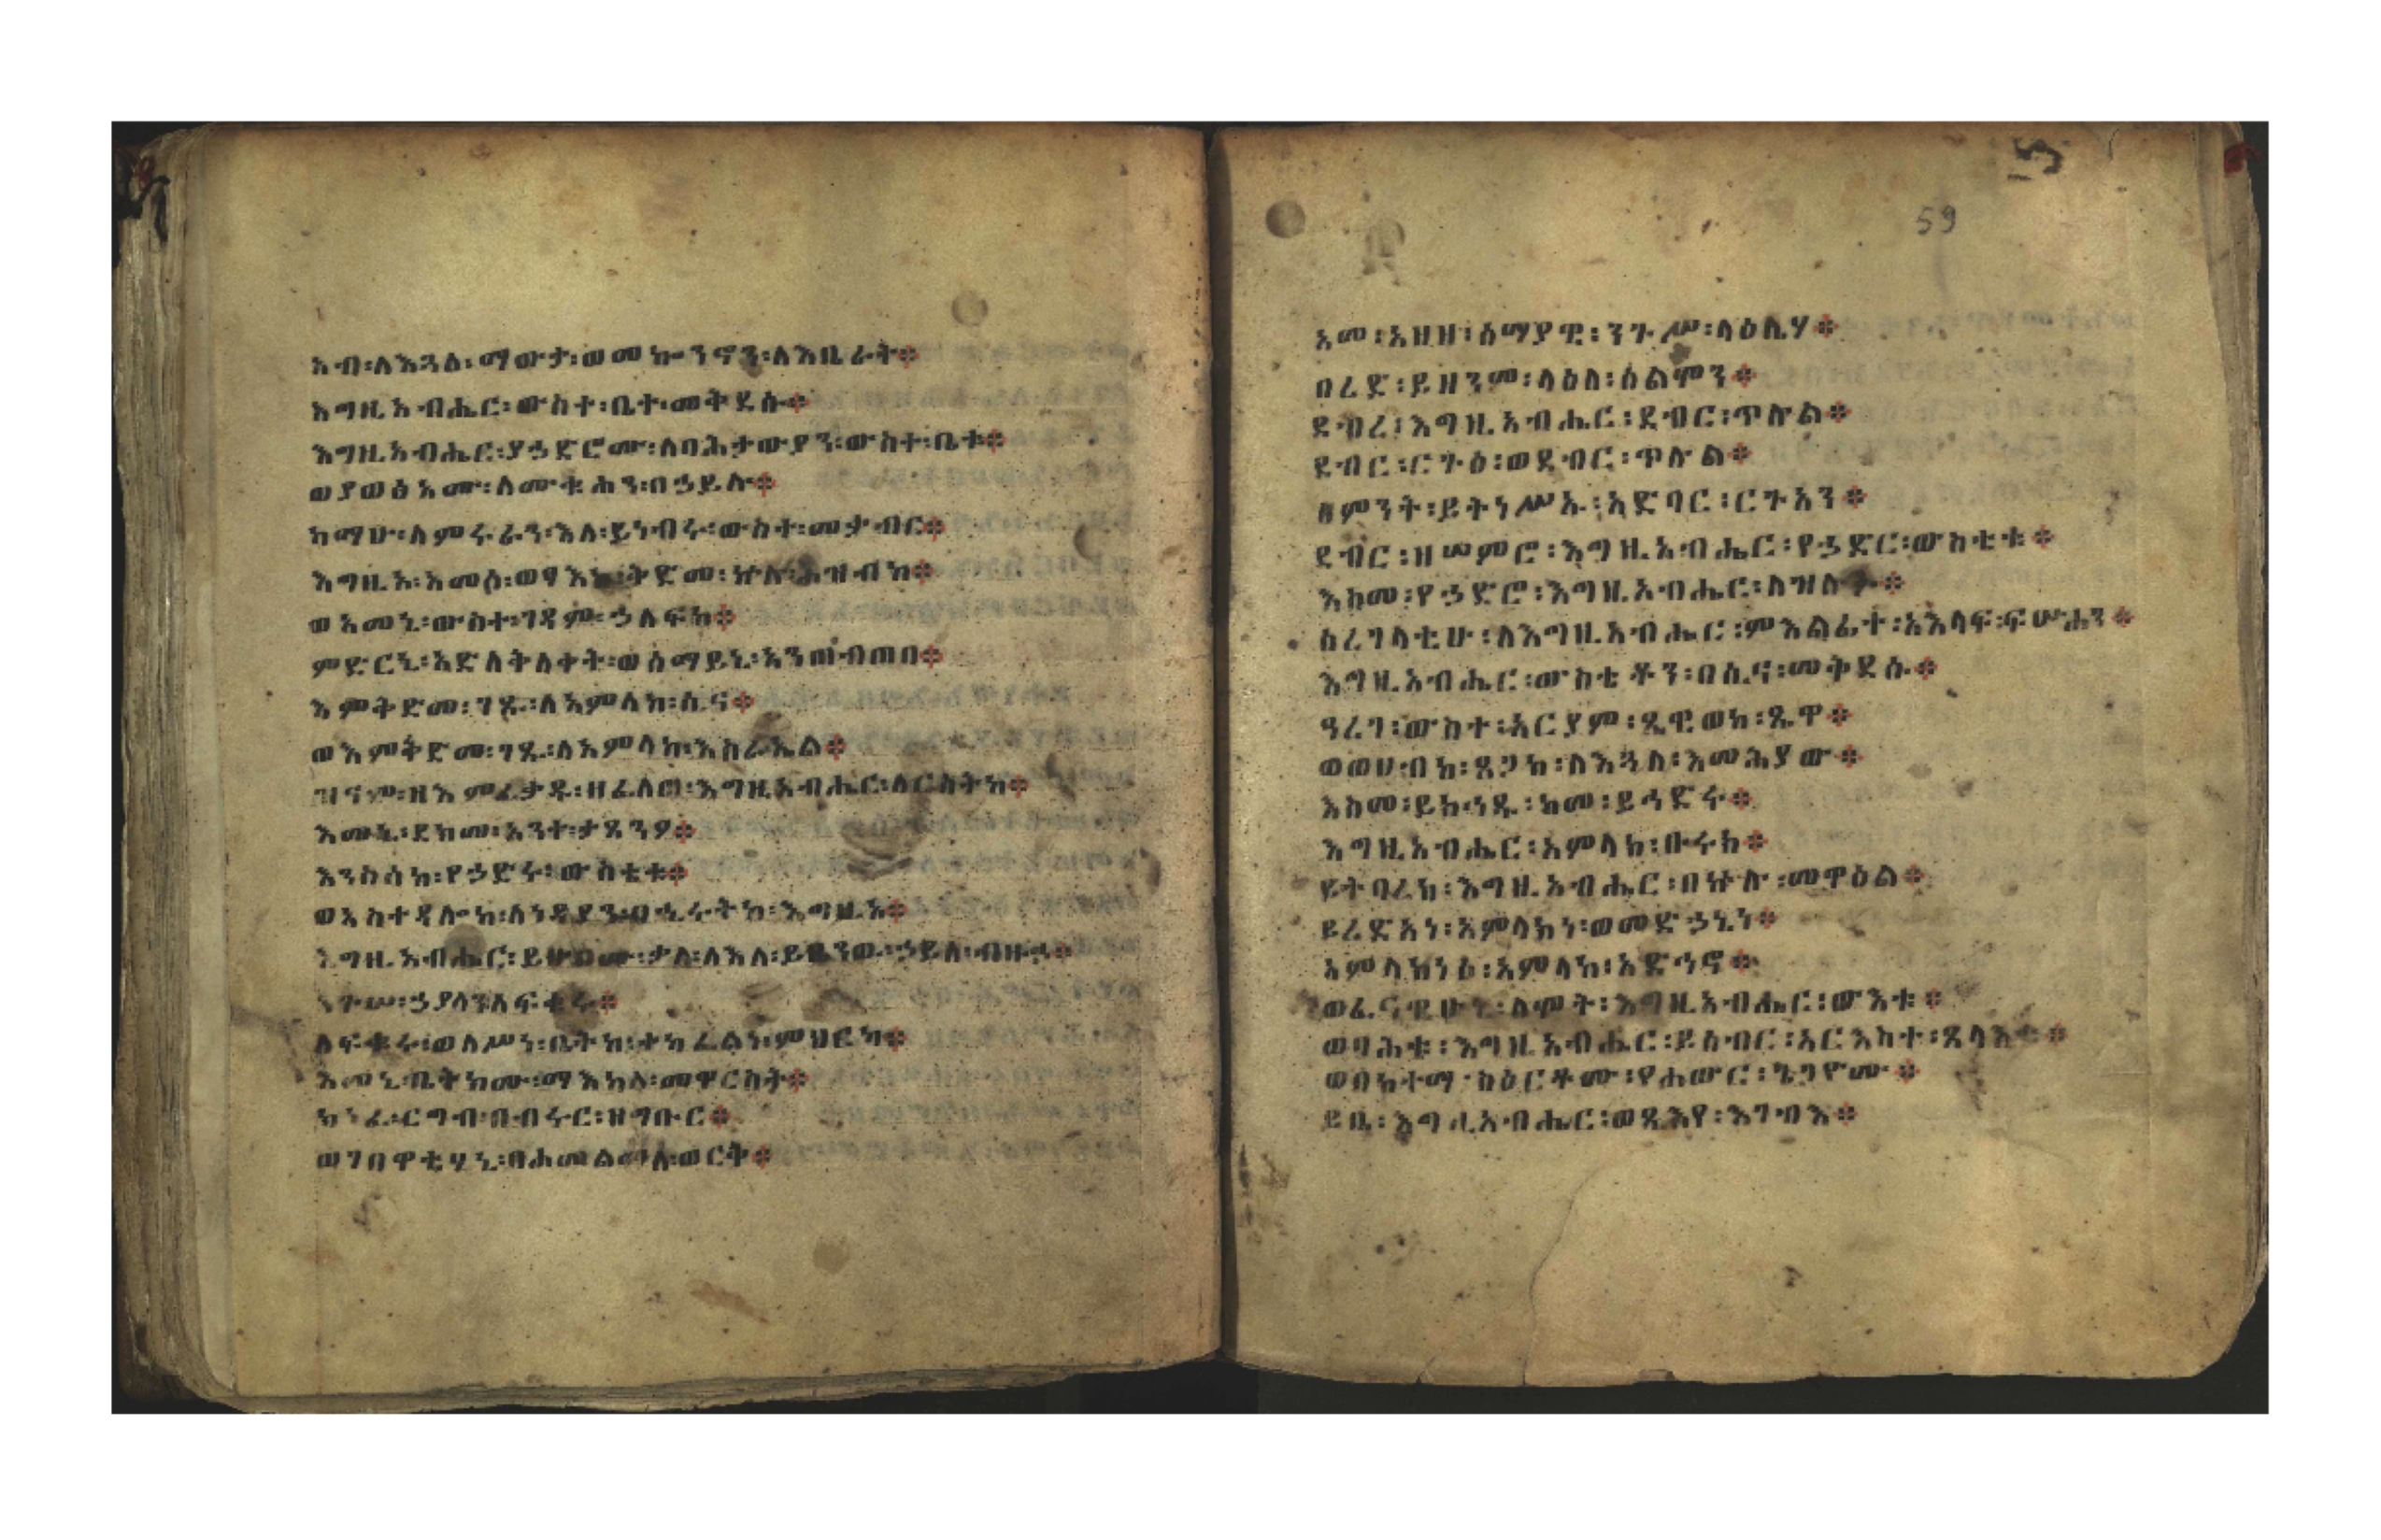 አብ፡ለእጓለ፡ማውታ፡ወመኰንኖን፡ለእቤራት።
እግዚአብሔር፡ውስተ፡ቤተ፡መቅደሱ።
እግዚአብሔር፡ያኃድሮሙ፡ለባሕታውያን፡ውስተ፡ቤቱ።
ወያወፅአሙ፡ለሙቁሐን፡በኃይሉ።
ከማሁ፡ለምሩራን፡እለ፡ይነብሩ፡ውስተ፡መታብር።
እግዚኦ፡አመፅ፡ወፃእከ፡ቅድመ፡ኵሉ፡ሕዝብከ።
ወአመኒ፡ውስተ፡ገዳም፡ኃለፍከ።
ምድርኒ፡አድለቅለቀት፡ወሰማይኒ፡አንጠብጠበ።
እምቅድመ፡ገጹ፡ለአምላከ፡ሲና።
ወእምቅድመ፡ገጹ፡ለአምላከ፡እስራኤል።
ዝናም፡ዘእምፈታዱ፡ዘፈለጠ፡እግዚአብሔር፡ለርስትከ።
እመኒ፡ደክመ፡አንተ፡ታጸንዖ።
እንስሳከ፡የኃድሩ፡ውስቴቱ።
ወአስተዳሎከ፡ለነዳያን፡በኂሩትከ፡እግዚኦ።
እግዚአብሔር፡ይሁቦሙ፡ቃለ፡ለእለ፡ይዜንው፡ኃይለ፡ብዙኃ።
ንጉሠ፡ኃያላን፡ለፍቁሩ።
ለፍቁሩ፡ወለሥነ፡ቤትከ፡ተካፈልነ፡ምህርካ።
እመኒ፡ቤትክሙ፡ማእከለ፡መዋርስት።
ክነፈ፡ርግብ፡በብሩር፡ዘግቡር።
ወገበዋቲሃኒ፡በሐመልማለ፡ወርቅ።
አመ፡አዘዘ፡ሰማያዊ፡ንጉሥ፡ላዕሌሃ።
በረድ፡ይዘንም፡ላዕለ፡ሰልሞን።
ደብረ፡እግዚአብሔር፡ደብር፡ጥሉል።
ደብር፡ርጉዕ፡ወደብር፡ጥሉል።
ለምንት፡ይትነሥኡ፡አድባር፡ርጉአን።
ደብር፡ዘሠምሮ፡እግዚአብሔር፡የኃድር፡ውስቴቱ።
እስመ፡የኃድሮ፡እግዚአብሔር፡ለዝሉፉ።
ሰረገላቲሁ፡ለእግዚአብሔር፡ምእልፊተ፡አእላፍ፡ፍሡሓን።
እግዚአብሔር፡ውስቴቶን፡በሲና፡መቅደሱ።
ዓረገ፡ውስተ፡አርያም፡ጼዊወከ፡ጼዋ።
ወወሀብከ፡ጸጋከ፡ለእጓለ፡እመሕያው።
እስመ፡ይክህዱ፡ከመ፡ይኅድሩ።
እግዚአብሔር፡አምላክ፡ቡሩክ።
ይትባረክ፡እግዚአብሔር፡በኵሉ፡መዋዕል።
ይረድአነ፡አምላክነ፡ወመድኃኒነ።
አምላክነሰ፡አምላክ፡አድኅኖ።
ወፈናዊሁኒ፡ለሞት፡እግዚአብሔር፡ውእቱ።
ወባሕቱ፡እግዚአብሔር፡ይሰብር፡አርእስተ፡ጸላእቱ።
ወበከተማ፡ስዕርቶሙ፡የሐውር፡ጌጋዮሙ።
ይቤ፡እግዚአብሔር፡ወጼእየ፡እገብእ።
59